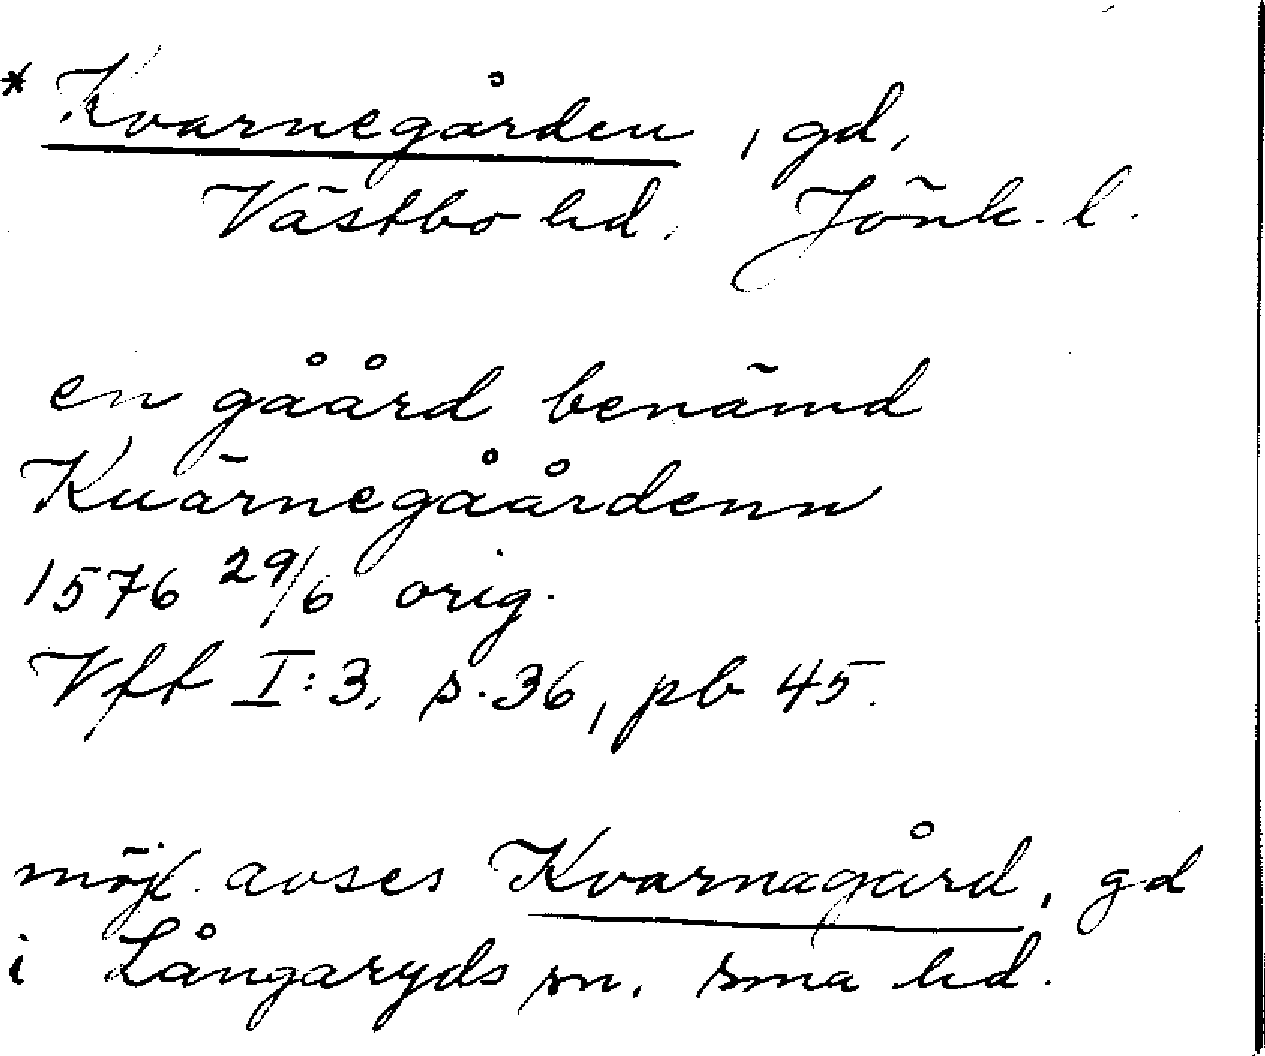 * Kvarnegården, gd,
Västbo hd, Jönk. l.
en gåård benämd
Kuärnegåårdenn
1576 29/6 orig.
Vft I:3, s. 36, pb 45.
möjl. avses Kvarnagård, gd
i Långaryds sn, sma hd.